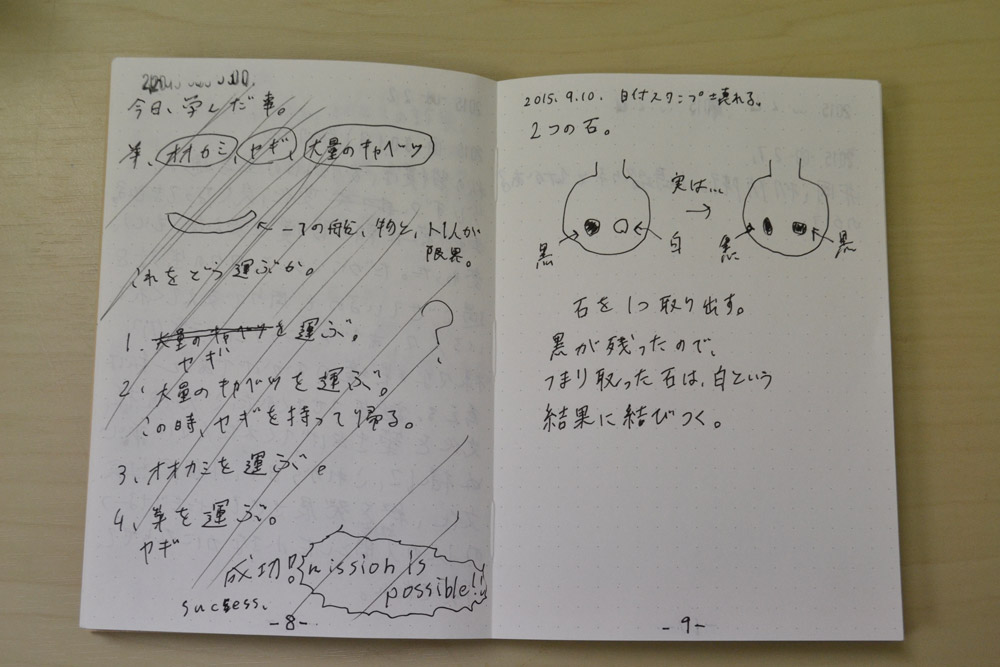 今日、学んだ事。
オオカミ、ヤギ、大量のキャベツ
←一つの船、物と、人1人が
限界。
これをどう運ぶか。
?
1、大量のキャベツを運ぶ。
ヤギ
2、大量のキャベツを運ぶ。
この時、ヤギを持って帰る。
3、オオカミを運ぶ。
4、を運ぶ。
ヤギ
成功!! mission is
possible!!
success.
-8-
2015.9.10. 日付スタンプ壊れる。
2つの石。
実は…
→
黒 白 黒 黒
石を1つ取り出す。
黒が残ったので、
つまり取った石は、白という
結果に結びつく。
-9-